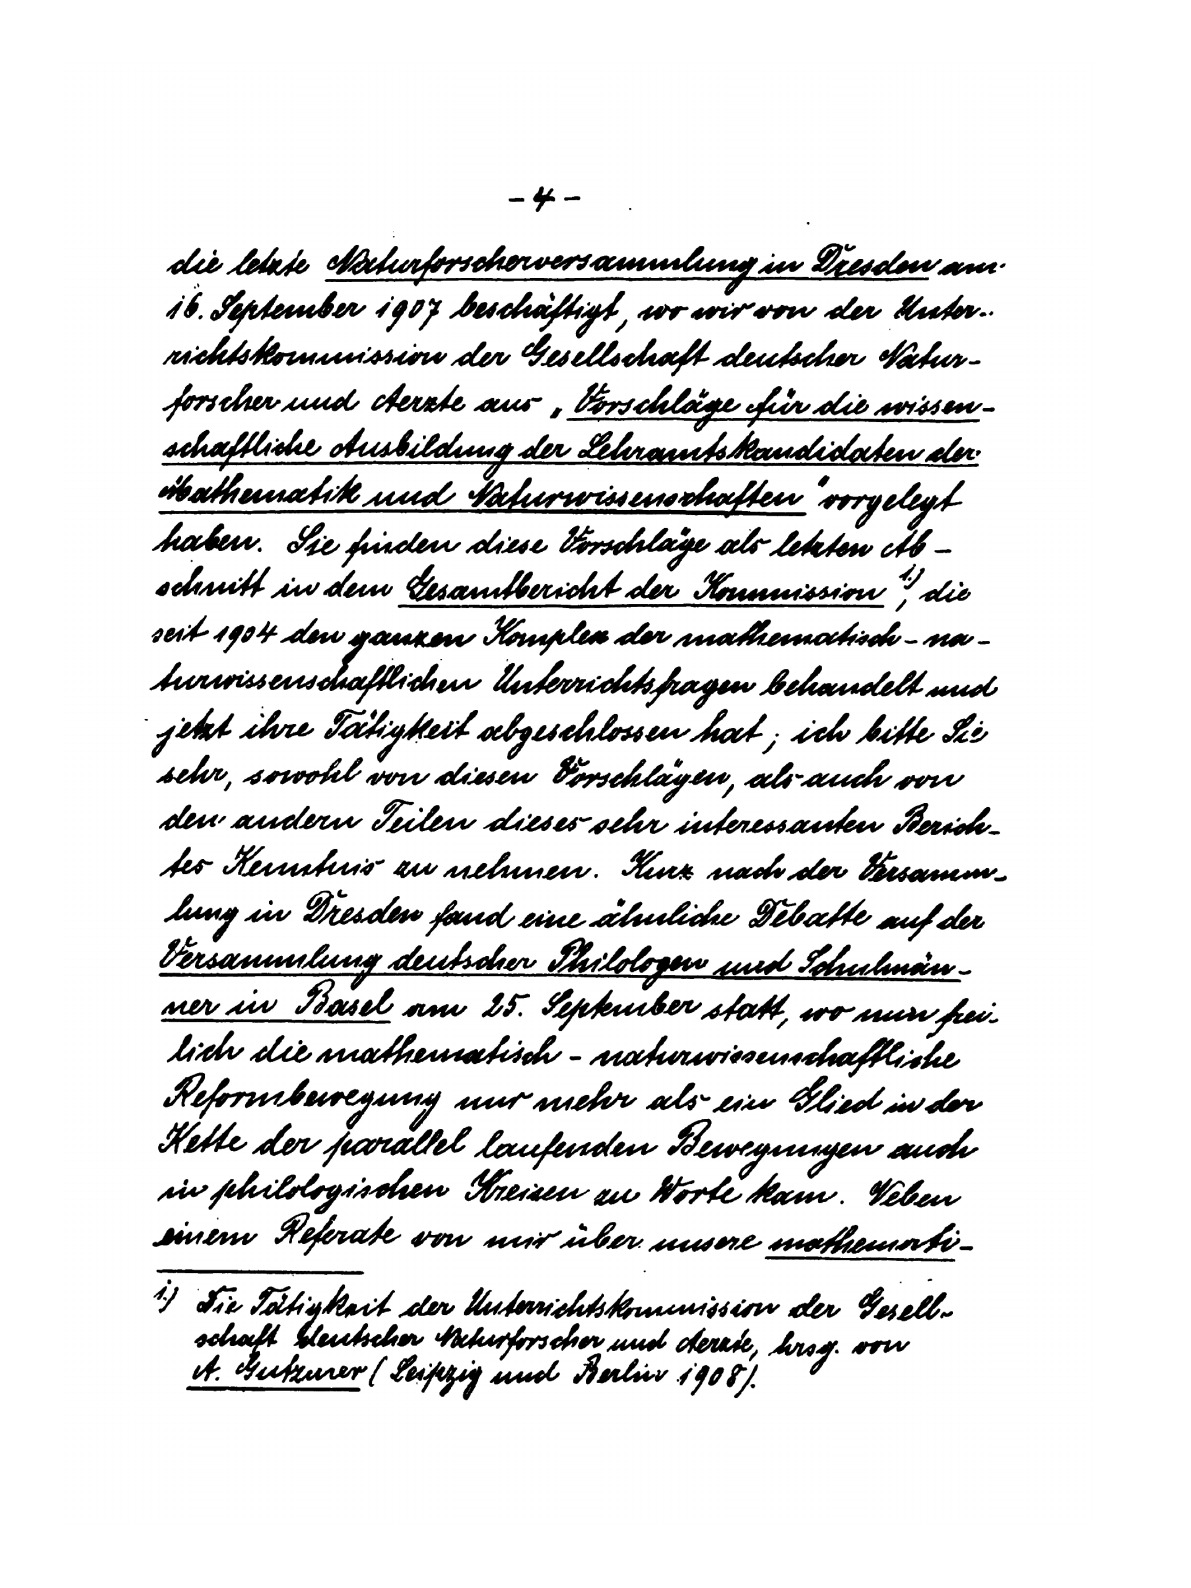 - 4 -
die letzte Naturforscherversammlung in Dresden am
16. September 1907 beschäftigt, wo wir von der Unter-
richtskommission der Gesellschaft deutscher Natur-
forscher und Aerzte aus „Vorschläge für die wissen-
schaftliche Ausbildung der Lehramtskandidaten der
Mathematik und Naturwissenschaften" vorgelegt
haben. Sie finden diese Vorschläge als letzten Ab-
schnitt in dem Gesamtbericht der Kommission 1.), die
seit 1904 den ganzen Komplex der mathematisch - na-
turwissenschaftlichen Unterrichtsfragen behandelt und
jetzt ihre Tätigkeit abgeschlossen hat; ich bitte Sie
sehr, sowohl von diesen Vorschlägen, als auch von
den andern Teilen dieses sehr interessanten Berich-
tes Kenntnis zu nehmen. Kurz nach der Versamm-
lung in Dresden fand eine ähnliche Debatte auf der
Versammlung deutscher Philologen und Schulmän-
ner in Basel am 25. September statt, wo nun frei-
lich die mathematisch - naturwissenschaftliche
Reformbewegung nur mehr als ein Glied in der
Kette der parallel laufenden Bewegungen auch
in philologischen Kreisen zu Worte kam. Neben
einem Referate von mir über unsere mathemati-
1.) Die Tätigkeit der Unterrichtskommission der Gesell-
schaft deutscher Naturforscher und Aerzte, hrsg. von
A. Gutzmer (Leipzig und Berlin 1908).